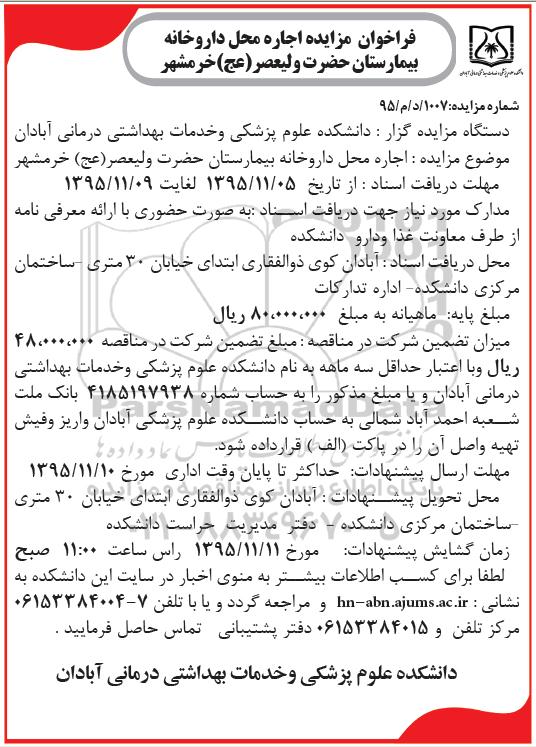 فراخوان مزایده اجاره محل داروخانه
بیمارستان حضرت ولیعصر(عج)خرمشهر
دانشکده علوم پزشکی و خدمات بهداشتی درمانی آبادان
شماره مزایده:۹۵/م/د/۱۰۰۷
دستگاه مزایده گزار : دانشکده علوم پزشکی وخدمات بهداشتی درمانی آبادان
موضوع مزایده : اجاره محل داروخانه بیمارستان حضرت ولیعصر(عج) خرمشهر
مهلت دریافت اسناد : از تاریخ ۱۳۹۵/۱۱/۰۵ لغایت ۱۳۹۵/۱۱/۰۹
مدارک مورد نیاز جهت دریافت اسناد :به صورت حضوری با ارائه معرفی نامه
از طرف معاونت غذا ودارو دانشکده
محل دریافت اسناد : آبادان کوی ذوالفقاری ابتدای خیابان ۳۰ متری -ساختمان
مرکزی دانشکده- اداره تدارکات
مبلغ پایه: ماهیانه به مبلغ ۸۰,۰۰۰,۰۰۰ ریال
میزان تضمین شرکت در مناقصه : مبلغ تضمین شرکت در مناقصه ۴۸,۰۰۰,۰۰۰
ریال وبا اعتبار حداقل سه ماهه به نام دانشکده علوم پزشکی وخدمات بهداشتی
درمانی آبادان و یا مبلغ مذکور را به حساب شماره ۴۱۸۵۱۹۷۹۳۸ بانک ملت
شعبه احمد آباد شمالی به حساب دانشکده علوم پزشکی آبادان واریز وفیش
تهیه واصل آن را در پاکت (الف) قرارداده شود.
مهلت ارسال پیشنهادات: حداکثر تا پایان وقت اداری مورخ ۱۳۹۵/۱۱/۱۰
محل تحویل پیشنهادات : آبادان کوی ذوالفقاری ابتدای خیابان ۳۰ متری
-ساختمان مرکزی دانشکده - دفتر مدیریت حراست دانشکده
زمان گشایش پیشنهادات: مورخ ۱۳۹۵/۱۱/۱۱ راس ساعت ۱۱:۰۰ صبح
لطفا برای کسب اطلاعات بیشتر به منوی اخبار در سایت این دانشکده به
نشانی : hn-abn.ajums.ac.ir و مراجعه گردد و یا با تلفن ۷-۰۶۱۵۳۳۸۴۰۰۴
مرکز تلفن و ۰۶۱۵۳۳۸۴۰۱۵ دفتر پشتیبانی تماس حاصل فرمایید .
دانشکده علوم پزشکی وخدمات بهداشتی درمانی آبادان
ParsNamadData